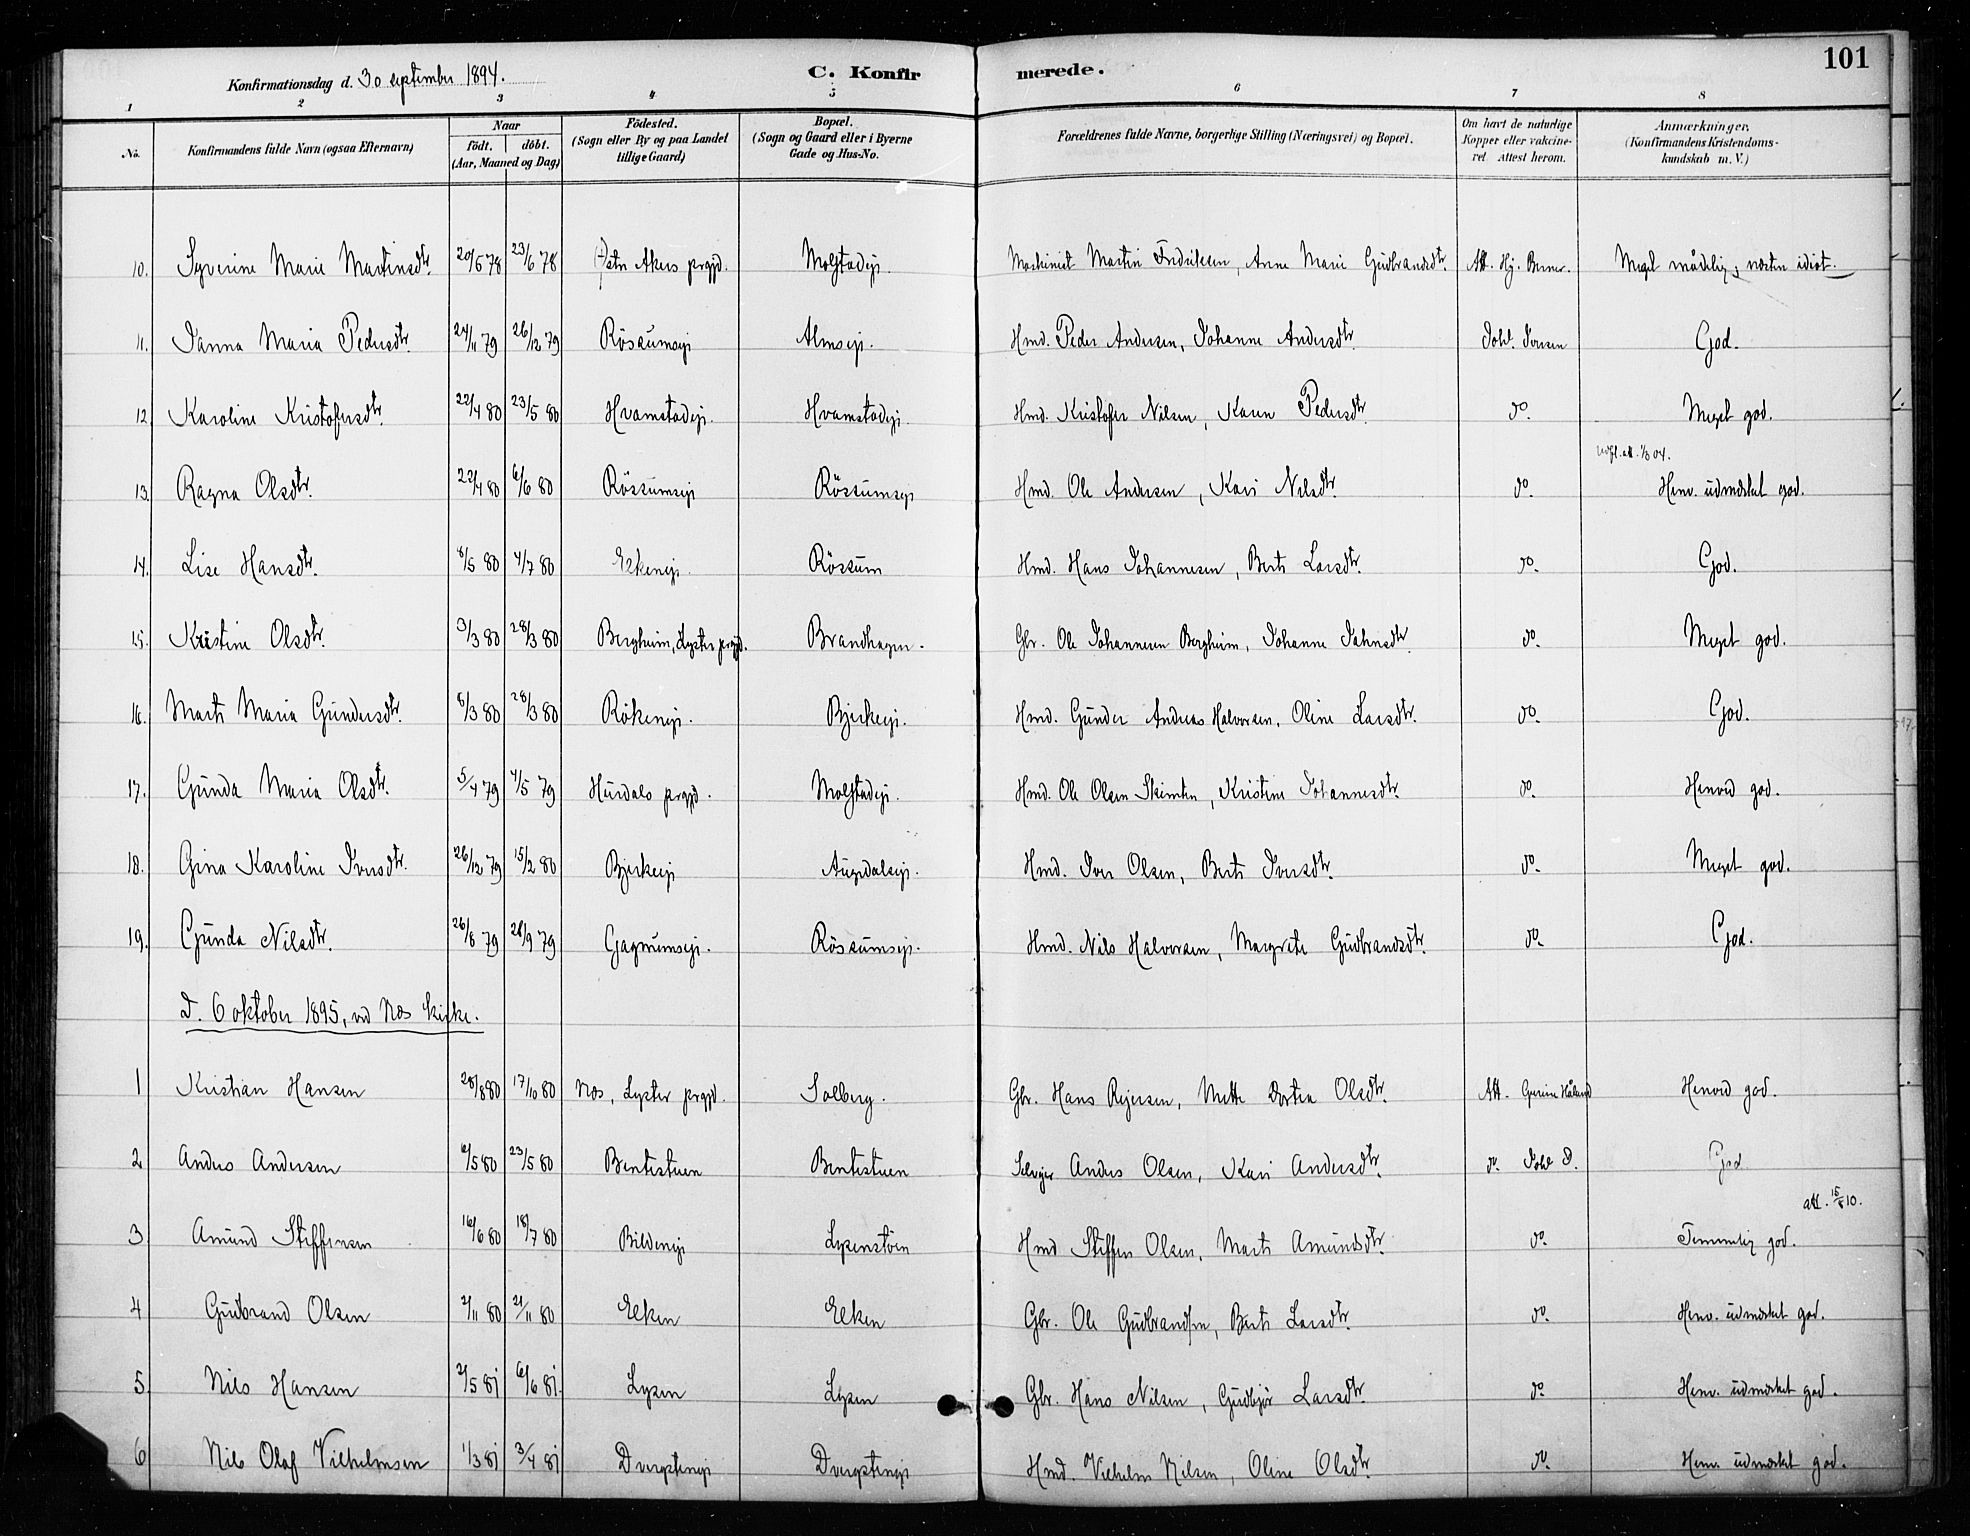 101
Konfirmationsdag d. 30 september 1894.
C. Konfirmerede.
1 2 3 4 5 6 7 8
No.
Konfirmandens fulde Navn (ogsaa Efternavn)
Naar
født. døbt.
(Aar, Maaned og Dag)
Fødested.
(Sogn eller By og paa Landet
tillige Gaard)
Bopæl.
(Sogn og Gaard eller i Byerne
Gade og Hus-No.
Forældrenes fulde Navne, borgerlige Stilling (Næringsvei) og Bopæl.
Om havt de naturlige
Kopper eller vakcine-
ret Attest herom.
Anmærkninger.
(Konfirmandens Kristendoms-
kundskab m. V.)
10. Syverine Marie Martinsdtr. 20/5 78 23/6 78 Østre Akers prgjd. Molstadeje. Maskinist Martin Fredriksen, Anne Marie Gudbrandsdtr. Att. Hj. Berner. Meget mådelig; næsten idiot.
11. Janna Maria Pedersdtr. 24/11 79 26/12 79 Rössumseje Almseje. Hmd. Peder Andersen, Johanne Andersdtr. Johs. Iversen God.
12 Karoline Kristofersdtr. 22/4 80 23/5 80 Hvamstadeje. Hvamstadeje. Hmd. Kristofer Nilsen, Karen Pedersdtr. do. Meget god.
13. Ragna Olsdtr. 22/4 80 6/6 80 Rössumseje Rössumseje Hmd. Ole Andersen, Kari Nilsdtr. do. Henv. udmærket god.
14. Lise Hansdtr. 8/5 80 4/7 80 Elkeneje. Rössum Hmd. Hans Johannesen, Berte Larsdtr. do. God.
15. Kristine Olsdtr. 3/3 80 28/3 80 Bergheim, Lyster prgjd. Brandhagen. Gbr. Ole Johannesen Bergheim, Johanne Jahnsdtr. do. Meget god.
16. Marte Maria Gundersdtr. 8/3 80 28/3 80 Rökeneje. Bjerkeeje. Hmd. Gunder Andreas Halvorsen, Oline Larsdtr. do. God.
17. Gunda Maria Olsdtr. 5/4 79 4/5 79 Hurdals prgjd. Molstadeje. Hmd. Ole Olsen Skimten, Kristine Johannesdtr. do. Henved god.
18. Gina Karoline Iversdtr. 26/12 79 15/2 80 Bjerkeeje Augedalseje. Hmd. Iver Olsen, Berte Iversdtr. do. Meget god.
19. Gunda Nilsdtr. 26/8 79 28/9 79 Gagnumseje. Rössumseje. Hmd. Nils Halvorsen, Margrete Gudbrandsdtr. do. God.
D. 6 oktober 1895, ved Næs kirke.
1 Kristian Hansen 28/8 80 17/10 80 Næs, Lyster prgjd. Solberg. Gbr. Hans Rejersen, Mette Dortea Olsdtr. Att. Håland Henved god.
2 Anders Andersen 6/5 80 23/5 80 Bentestuen Bentestuen Selvejer Anders Olsen, Kari Andersdtr. do. God
att. 15/8 10.
3 Amund Steffensen 16/6 80 18/7 80 Bildeneje Lysenstöen Hmd Steffen Olsen, Marte Amundsdtr. do. Temmelig god.
4 Gudbrand Olsen 2/11 80 21/11 80 Elken Elken Gbr. Ole Gudbrandsen, Berte Larsdtr. do. Henv. udmærket god.
5. Nils Hansen 2/5 81 6/6 81. Lysen Lysen Gbr. Hans Nilsen, Gudbjør Larsdtr. do. Henv. udmærket god.
6 Nils Olaf Vilhelmsen 1/3 81 3/4 81 Dvergsteneje Dvergsteneje Hmd. Vilhelm Nilsen, Oline Olsdtr. do. Henv. udmærket god.